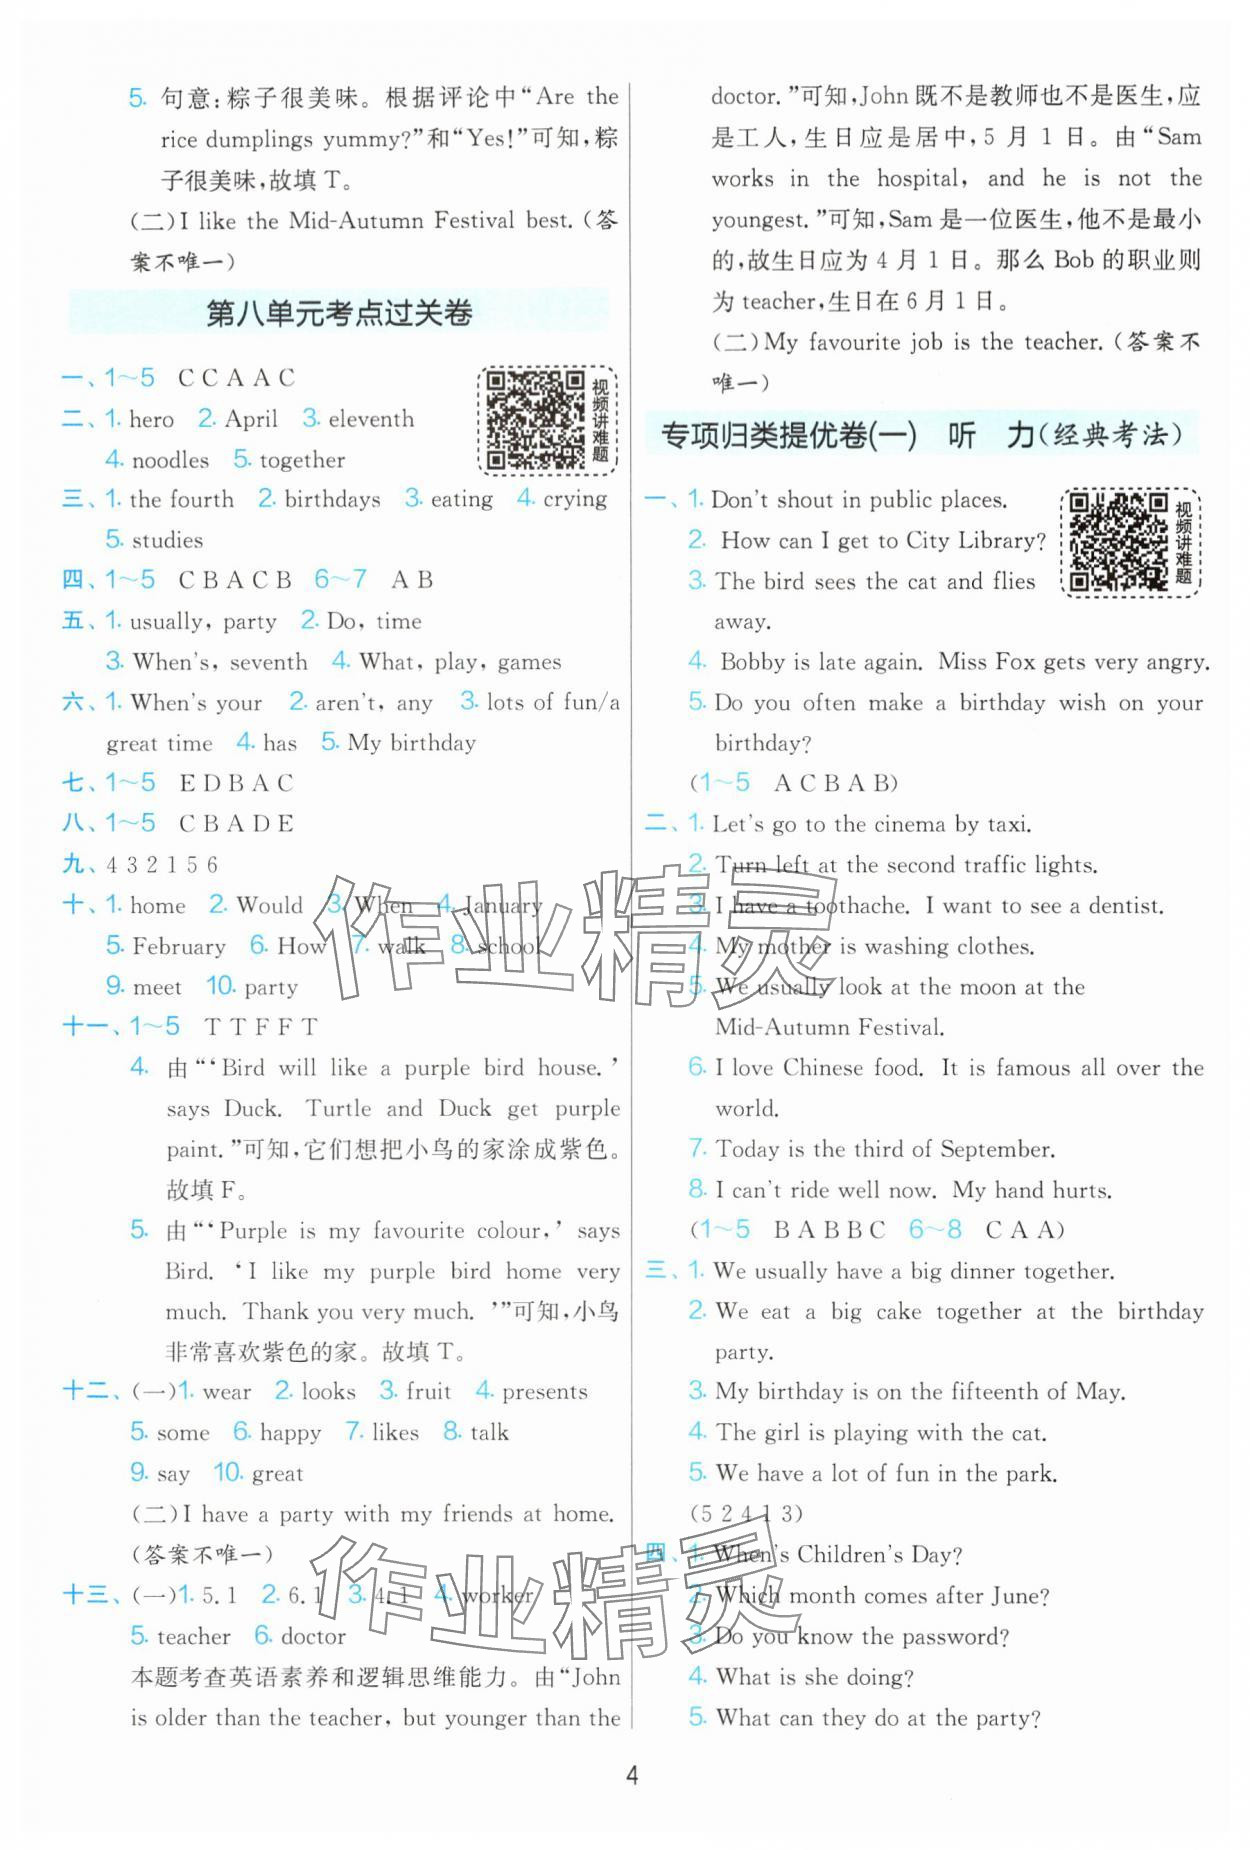 5. 句意:粽子很美味。根据评论中“Are the
rice dumplings yummy?”和“Yes!”可知,粽
子很美味,故填T。
(二)I like the Mid-Autumn Festival best.(答
案不唯一)
第八单元考点过关卷
一、1～5 C C A A C
二、1. hero 2. April 3. eleventh
4. noodles 5. together
视频讲难题
三、1. the fourth 2. birthdays 3. eating 4. crying
5. studies
四、1～5 C B A C B 6～7 A B
五、1. usually, party 2. Do, time
3. When's, seventh 4. What, play, games
六、1. When's your 2. aren't, any 3. lots of fun/a
great time 4. has 5. My birthday
七、1～5 E D B A C
八、1～5 C B A D E
九、4 3 2 1 5 6
十、1. home 2. Would 3. When 4. January
5. February 6. How 7. walk 8. school
9. meet 10. party
十一、1～5 T T F F T
4. 由“‘Bird will like a purple bird house.’
says Duck. Turtle and Duck get purple
paint.”可知,它们想把小鸟的家涂成紫色。
故填F。
5. 由“‘Purple is my favourite colour,’ says
Bird. ‘I like my purple bird home very
much. Thank you very much.’”可知,小鸟
非常喜欢紫色的家。故填T。
十二、(一)1. wear 2. looks 3. fruit 4. presents
5. some 6. happy 7. likes 8. talk
9. say 10. great
(二)I have a party with my friends at home.
(答案不唯一)
十三、(一)1. 5.1 2. 6.1 3. 4.1 4. worker
5. teacher 6. doctor
本题考查英语素养和逻辑思维能力。由“John
is older than the teacher, but younger than the
doctor.”可知,John既不是教师也不是医生,应
是工人,生日应是居中,5月1日。由“Sam
works in the hospital, and he is not the
youngest.”可知,Sam是一位医生,他不是最小
的,故生日应为4月1日。那么Bob的职业则
为teacher,生日在6月1日。
(二)My favourite job is the teacher.(答案不
唯一)
专项归类提优卷(一) 听 力(经典考法)
一、1. Don't shout in public places.
2. How can I get to City Library?
3. The bird sees the cat and flies
away.
视频讲难题
4. Bobby is late again. Miss Fox gets very angry.
5. Do you often make a birthday wish on your
birthday?
(1～5 A C B A B)
二、1. Let's go to the cinema by taxi.
2. Turn left at the second traffic lights.
3. I have a toothache. I want to see a dentist.
4. My mother is washing clothes.
5. We usually look at the moon at the
Mid-Autumn Festival.
6. I love Chinese food. It is famous all over the
world.
7. Today is the third of September.
8. I can't ride well now. My hand hurts.
(1～5 B A B B C 6～8 C A A)
三、1. We usually have a big dinner together.
2. We eat a big cake together at the birthday
party.
3. My birthday is on the fifteenth of May.
4. The girl is playing with the cat.
5. We have a lot of fun in the park.
(5 2 4 1 3)
四、1. When's Children's Day?
2. Which month comes after June?
3. Do you know the password?
4. What is she doing?
5. What can they do at the party?
作业精灵
作业精灵
4